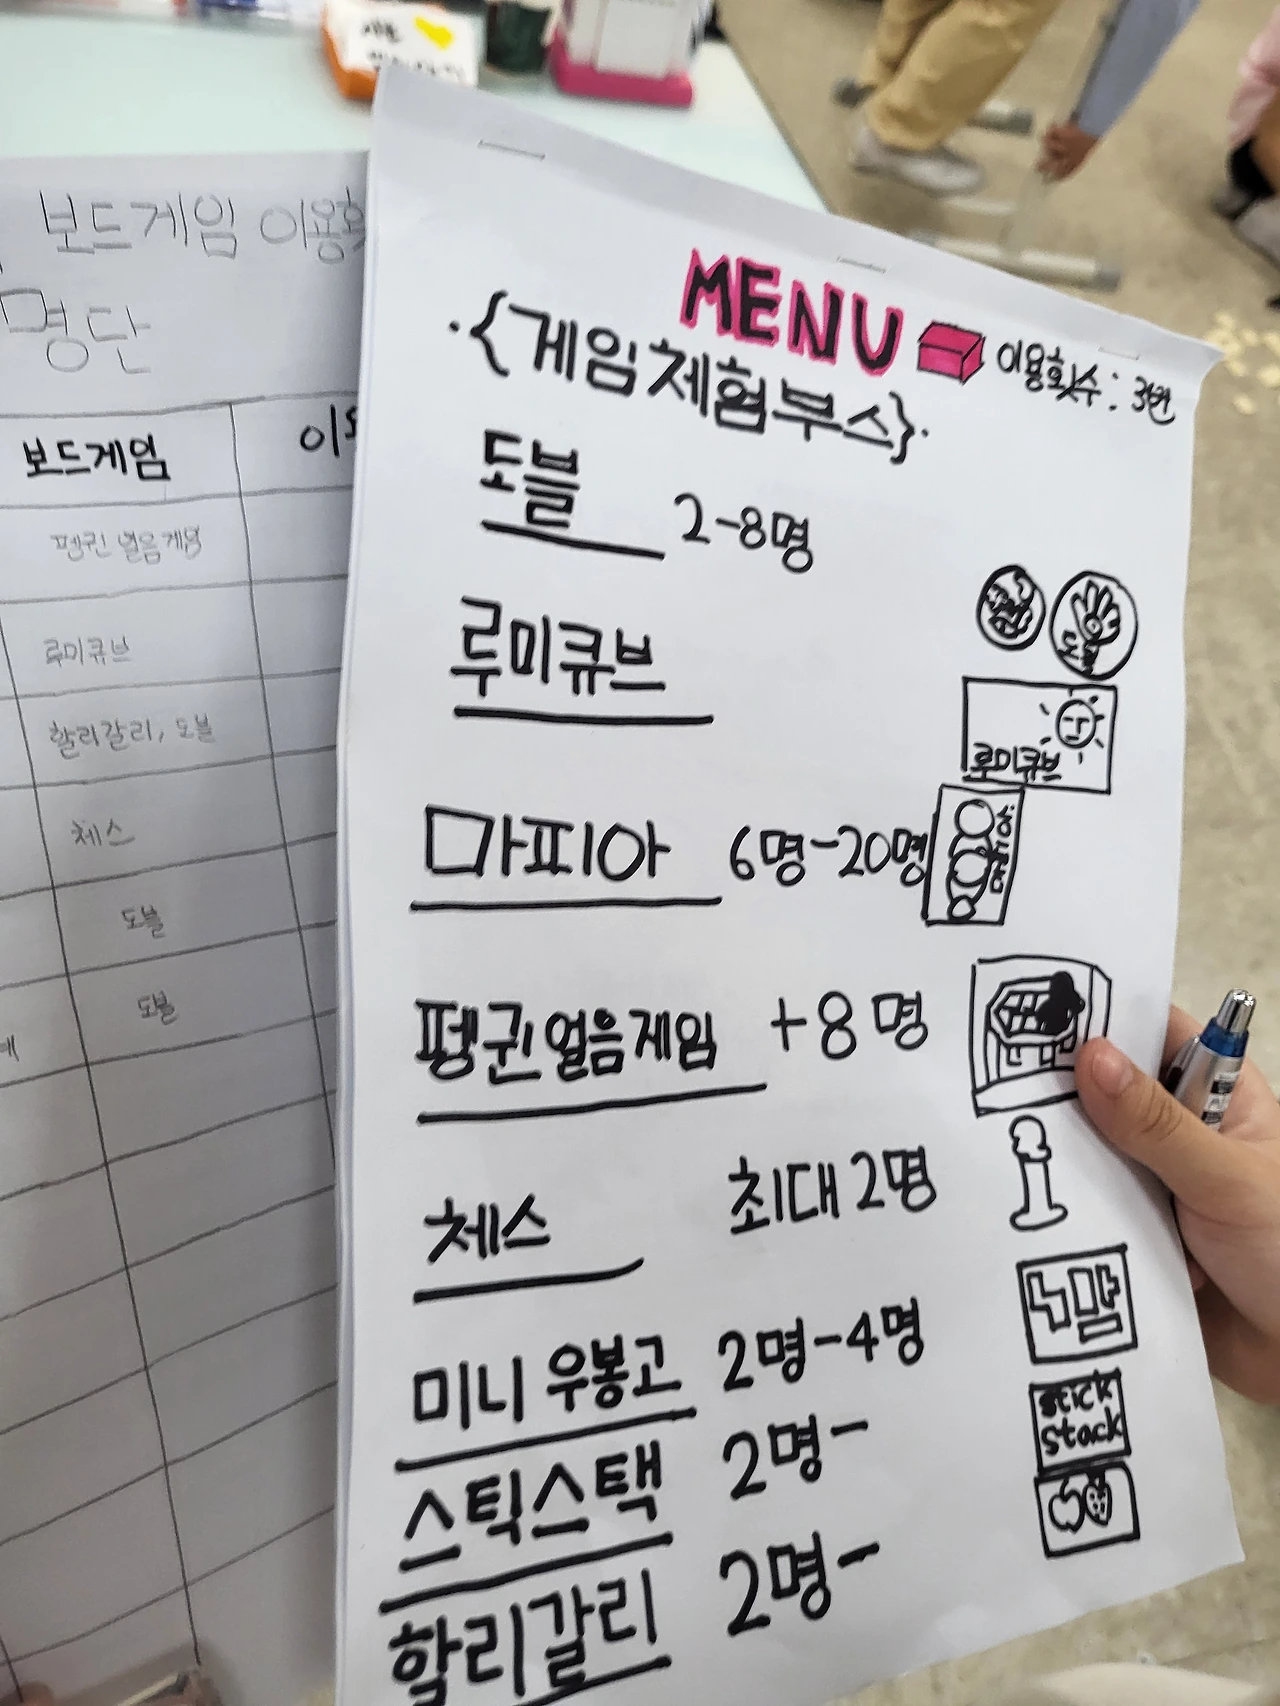 보드게임 이용
명단
보드게임
펭귄 얼음게임
루미큐브
할리갈리, 도블
체스
도블
도블
MENU
이용횟수: 3번
{게임체험부스}
도블 2-8명
도블
루미큐브
루미큐브
마피아 6명-20명
펭귄얼음게임 +8명
체스 최대 2명
미니 우봉고 2명-4명
스틱스택 2명-
stick
stack
할리갈리 2명-